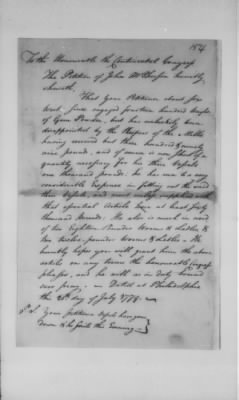 154
To the Honourable the Continental Congress
The Petition of John McPherson humbly
sheweth.
That Your Petitioner about four
Weeks since engaged fourteen hundred weight
of Gun Powder, but has unluckily been
disappointed by the Keepers of the Mills
having moved but three hundred & ninety
nine pounds, and of course is now short of a
quantity necessary for his three Vessels
one thousand pounds: he has been at a very
considerable Expence in fitting out the said
three Vessels, and now only supplied with
that essential Article
thousand pounds: He also is much in need
of two Eighteen Pounder Worms & Ladles &
two twelve pounder Worms & Ladles. He
humbly hopes you will grant him the above
articles on any terms the honourable Congress
pleases, and he will as in duty bound
ever pray. Dated at Philadelphia
the 28th day of July 1778.
P.S. Your Petitioners Vessels have gone
down & he sails this Evening